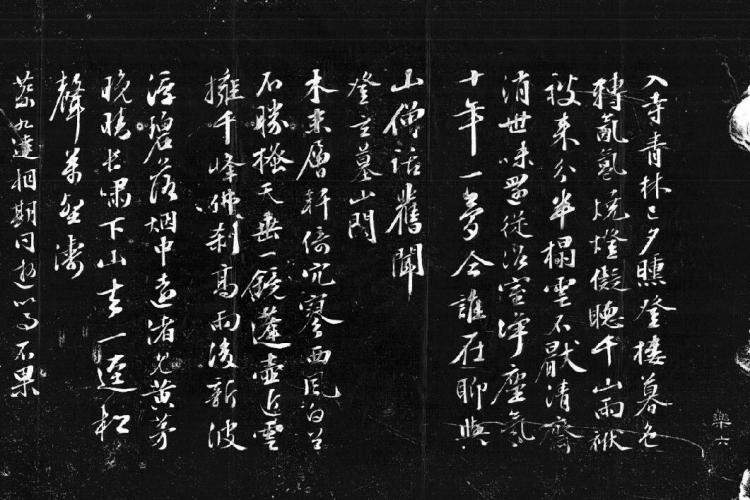 入寺青林已夕曛登樓暮色
轉氤氳燒燈儗聽千山雨袱
被來分半榻雲不厭清齋
消世味從浴室淨塵氛
十年一夢今誰在聊與
山僧話舊聞
登玄墓山閣
木末層軒倚泬寥西風為
不勝搔天垂一鏡蓬壺近雲
擁千峰佛刹高雨後新波
浮碧落烟中遠渚見黃茅
晚晴長嘯下山去一逕松
聲萬壑濤
蔡九逵相期同遊以事不果
樂六